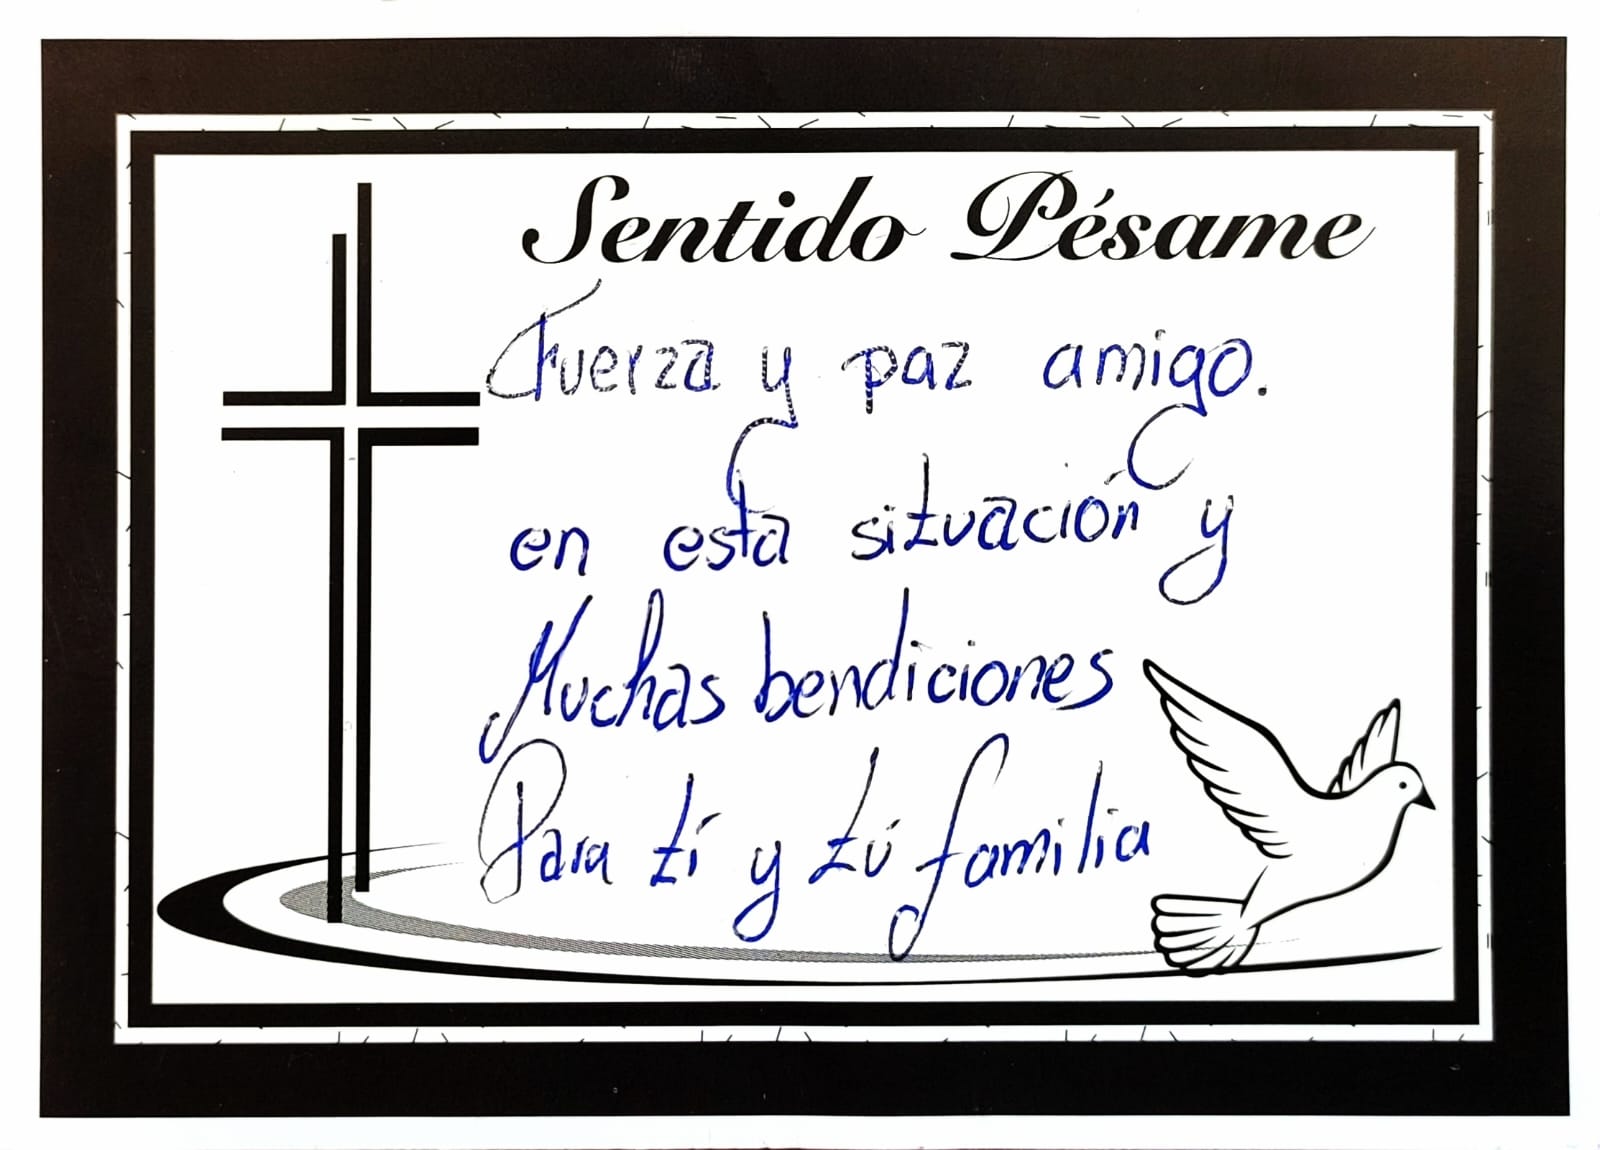 Sentido Pésame
Fuerza y paz amigo.
en esta situación y
Muchas bendiciones
Para tí y tú familia